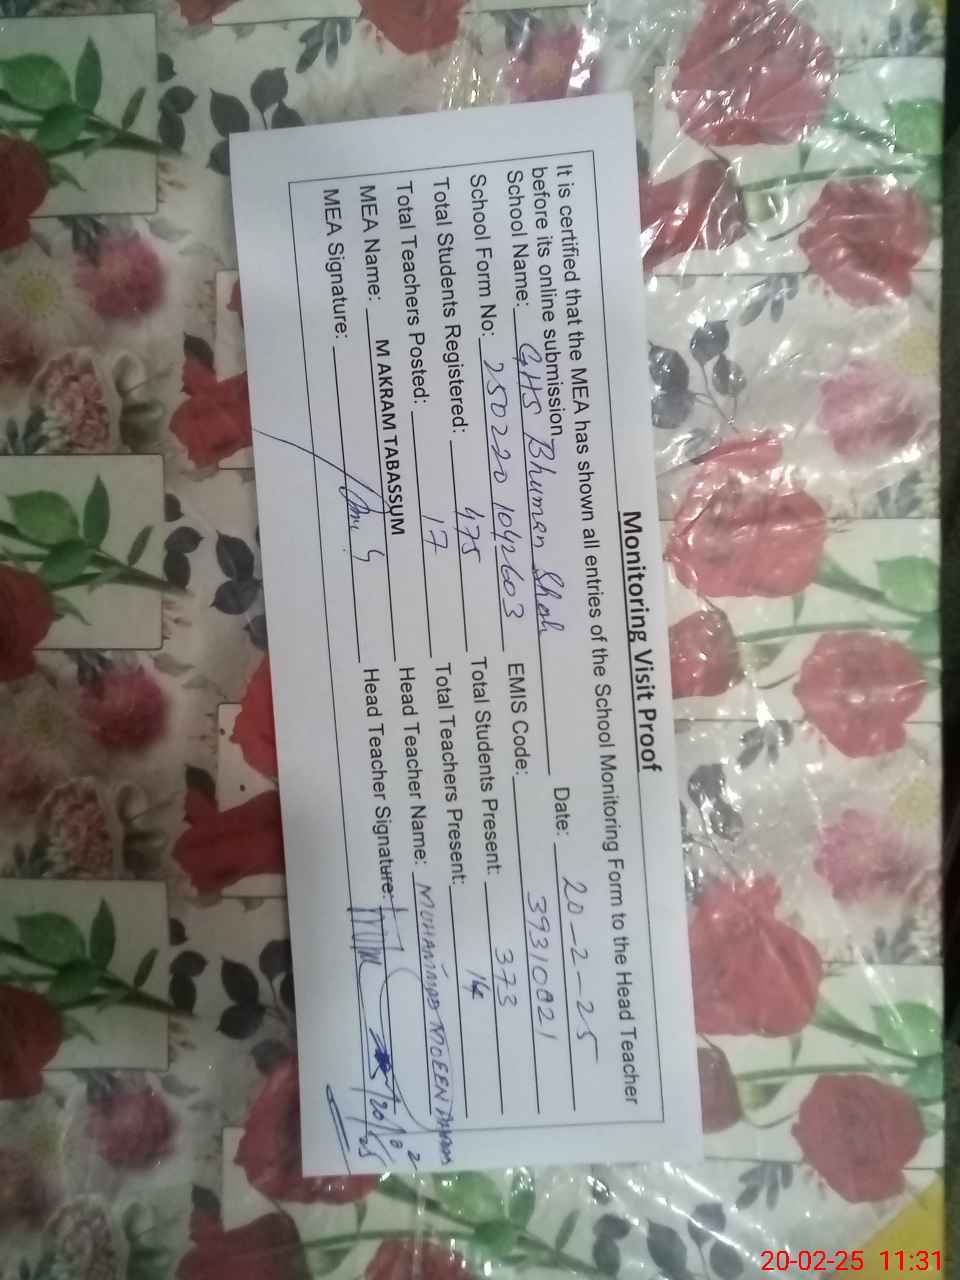 Monitoring Visit Proof
It is certified that the MEA has shown all entries of the School Monitoring Form to the Head Teacher
before its online submission Date: 20-2-25
School Name: GHS Bhuman Shah
School Form No: 250220 1042603 EMIS Code: 39310021
Total Students Registered: 475 Total Students Present: 373
Total Teachers Posted: 17 Total Teachers Present: 14
MEA Name: M AKRAM TABASSUM Head Teacher Name: MUHAMMAD MOEEN
MEA Signature: Head Teacher Signature:
20-02-25 11:31